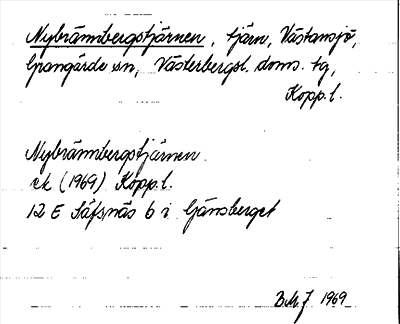 Nybrännbergstjärnen, tjärn, Västansjö,
Grangärde sn, Västerbergsl. doms. tg,
Kopp.l.
Nybrännbergstjärnen
ek (1969) Kopp.l.
12 E Säfsnäs 6 i Gänsberget
B.M.J. 1969